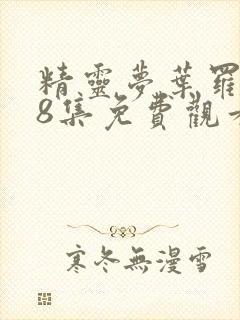 精靈夢葉羅
8集免費觀
寒冬無漫雪